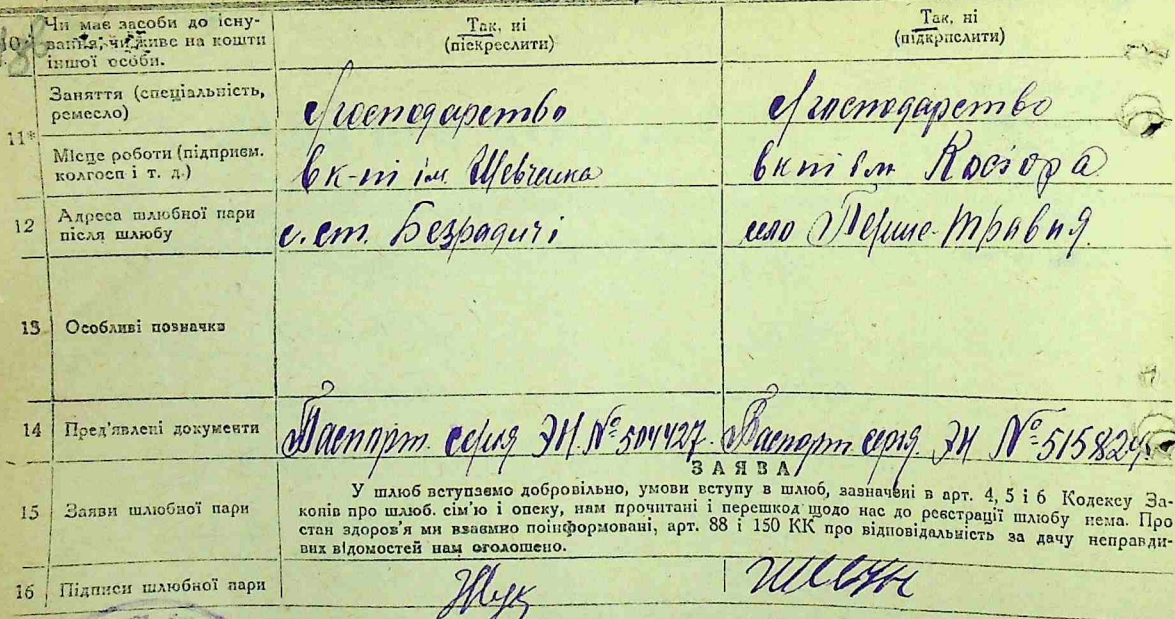 10 Чи має засоби до існу-
вання, чи живе на кошти
іншої особи.
Так, ні
(піскреслити)
Так, ні
(підкрислити)
11*
Заняття (спеціальність,
ремесло)
с/господарство
с/господарство
Місце роботи (підприєм.
колгосп і т. д.)
вк-ті ім. Шевченка
вкті ім Косіора
12 Адреса шлюбної пари
після шлюбу
с. ст. Безрадичі
село Перше-травня.
13 Особливі позначки
14 Пред'явлені документи
Паспорт. серія ЭН. № 504427.
Паспорт серія. ЭН № 515829
ЗАЯВА
15 Заяви шлюбної пари
У шлюб вступаємо добровільно, умови вступу в шлюб, зазначені в арт. 4, 5 і 6 Кодексу За-
конів про шлюб. сім'ю і опеку, нам прочитані і перешкод щодо нас до реєстрації шлюбу нема. Про
стан здоров'я ми взаємно поінформовані, арт. 88 і 150 КК про відповідальність за дачу неправди-
вих відомостей нам оголошено.
16 Підписи шлюбної пари
Жук